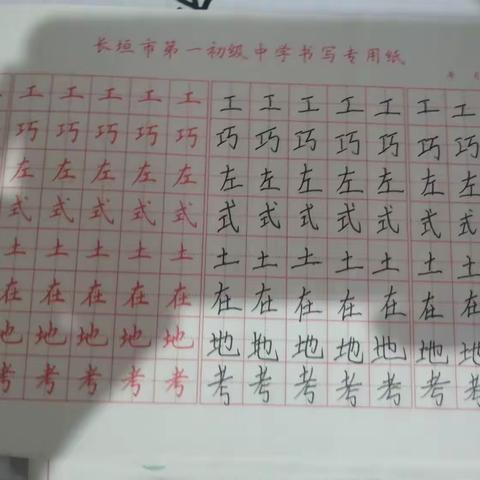 长垣市第一初级中学书写专用纸
年
工 工 工 工 工 工 工 工 工 工 工 工
巧 巧 巧 巧 巧 巧 巧 巧 巧 巧 巧 巧
左 左 左 左 左 左 左 左 左 左 左 左
式 式 式 式 式 式 式 式 式 式 式 式
土 土 土 土 土 土 土 土 土 土 土 土
在 在 在 在 在 在 在 在 在 在 在 在
地 地 地 地 地 地 地 地 地 地 地 地 地
考 考 考 考 考 考 考 考 考 考 考 考 考